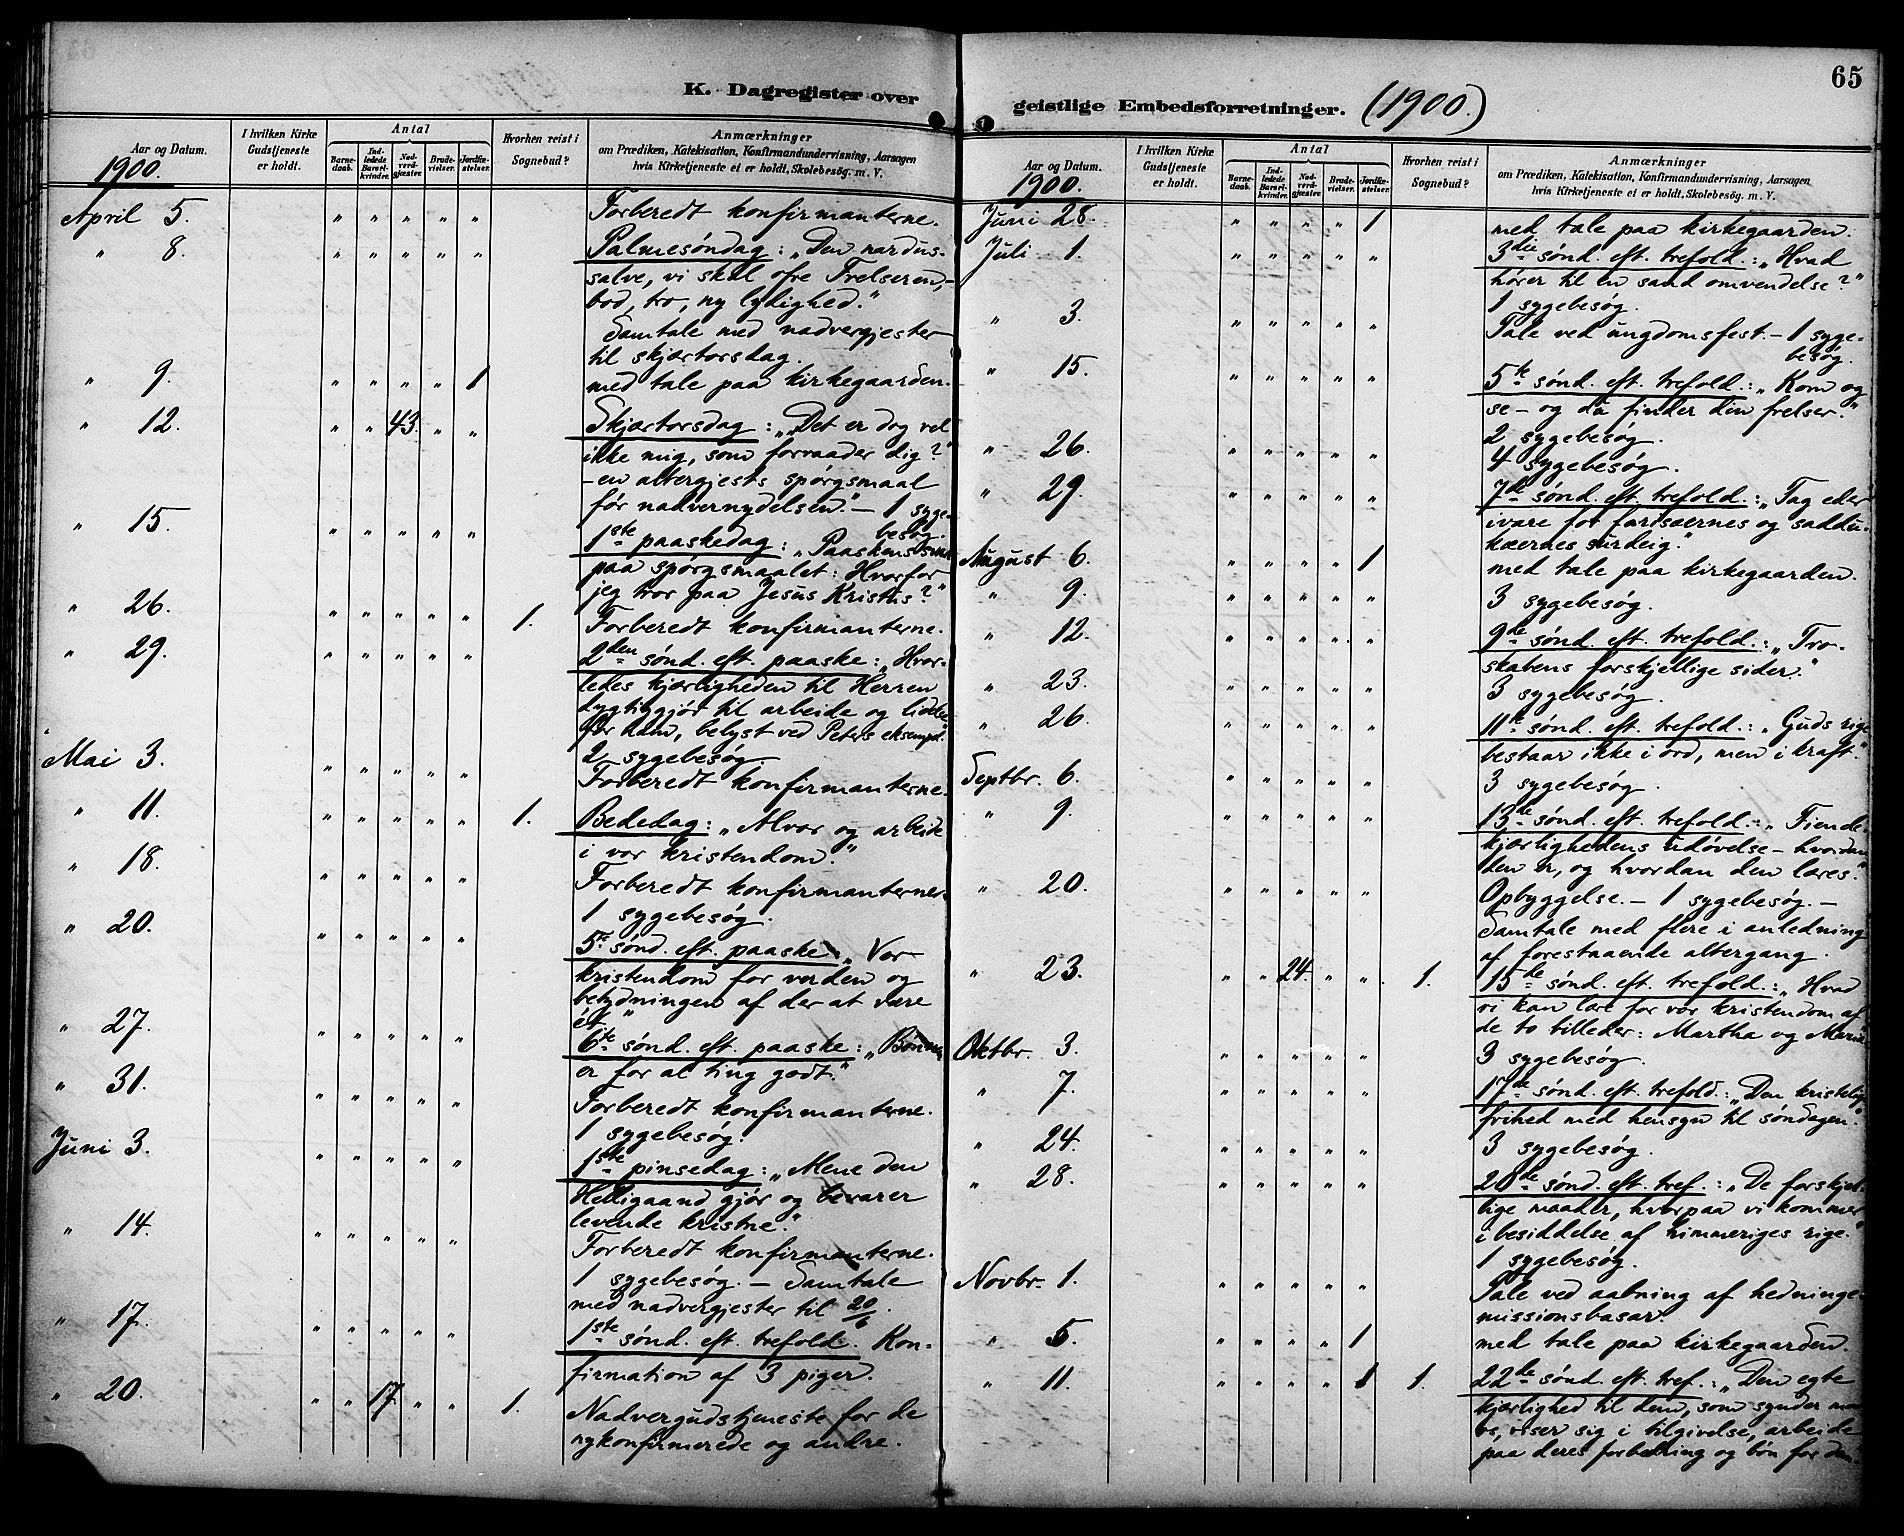 K. Dagregister over
Aar og Datum.
1900.
I hvilken Kirke Gudstjeneste er holdt.
Antal
Barnedaab.
Indledede Barselkvinder.
Nadverdgjæster.
Brudevielser.
Jordfæstelser.
Hvorhen reist i Sognebud?
Anmærkninger
om Prædiken, Katekisation, Konfirmandundervisning, Aarsagen
hvis Kirketjeneste ei er holdt, Skolebesøg. m. V.
April 5. " " " " " Forberedt konfirmanterne.
" 8. " " " " " Palmesøndag: „Den nardus-
salve, vi skal ofre Frelseren,-
bod, tro, ny lydighed."
Samtale med nadvergjester
til skjærtorsdag.
" 9. " " " " 1 med tale paa kirkegaarden.
" 12. " " 43. " " Skjærtorsdag: „Det er dog vel
ikke mig, som forraader dig?"
- en altergjests spørgsmaal
før nadvernydelsen." - 1 syge-
besøg.
" 15. " " " " " 1ste paaskedag: „Paaskens svar
paa spørgsmaalet: Hvorfor
jeg tror paa Jesus Kristus?"
" 26. " " " " " 1. Forberedt konfirmanterne.
" 29. " " " " " 2den sønd. eft. paaske: „Hvor-
ledes kjærligheden til Herren
dygtiggjør til arbeide og lidelse
for ham, belyst ved Peters eksempel."
2 sygebesøg.
Mai 3. " " " " " Forberedt konfirmanterne.
" 11. " " " " " 1. Bededag: „Alvor og arbeide
i vor kristendom."
" 18. " " " " " Forberedt konfirmanterne.
1 sygebesøg.
" 20. " " " " " 5te sønd. eft. paaske: „Vor
kristendom for verden og
betydningen af der at være
ét."
" 27. " " " " " 6te sønd. eft. paaske: „Bønnen
er for al ting godt."
" 31. " " " " " Forberedt konfirmanterne.
1 sygebesøg.
Juni 3. " " " " " 1ste pinsedag: „Alene den
Helligaand gjør og bevarer
levende kristne."
" 14. " " " " " Forberedt konfirmanterne.
1 sygebesøg. - Samtale
med nadvergjester til 20/6.
" 17. " " " " " 1ste sønd. eft. trefold. Kon-
firmation af 3 piger.
" 20. " " 17. " " 1. Nadvergudstjeneste for de
nykonfirmerede og andre.
geistlige Embedsforretninger. (1900.)
65
Aar og Datum.
1900.
I hvilken Kirke Gudstjeneste er holdt.
Antal
Barnedaab.
Indledede Barselkvinder.
Nadverdgjæster.
Brudevielser.
Jordfæstelser.
Hvorhen reist i Sognebud?
Anmærkninger
om Prædiken, Katekisation, Konfirmandundervisning, Aarsagen
hvis Kirketjeneste ei er holdt, Skolebesøg. m. V.
Juni 28. " " " " 1 med tale paa kirkegaarden.
Juli 1. " " " " " 3die sønd. eft. trefold.: „Hvad
hører til en sand omvendelse?"
1 sygebesøg.
" 3. " " " " " Tale ved ungdomsfest. - 1 syge-
besøg.
" 15. " " " " " 5te sønd. eft. trefold.: „Kom og
se - og du finder din frelser."
2 sygebesøg.
" 26. " " " " " 4 sygebesøg.
" 29. " " " " " 7de sønd. eft. trefold.: „Tag eder
ivare for farisæernes og saddu-
kæernes surdeig."
August 6. " " " " 1 med tale paa kirkegaarden.
" 9. " " " " " 3 sygebesøg.
" 12. " " " " " 9de sønd. eft. trefold.: „Tro-
skabens forskjellige sider."
" 23. " " " " " 3 sygebesøg.
" 26. " " " " " 11te sønd. eft. trefold.: „Guds rige
bestaar ikke i ord, men i kraft."
Septbr. 6. " " " " " 3 sygebesøg.
" 9. " " " " " 13de sønd. eft. trefold.: „Fiende-
kjærlighedens udøvelse - hvordan
den er, og hvordan den læres."
" 20. " " " " " Opbyggelse. - 1 sygebesøg. -
Samtale med flere i anledning
af forestaaende altergang.
" 23. " " 24. " " 1. 15de sønd. eft. trefold.: „Hvad
vi kan lære for vor kristendom af
de to billeder: Martha og Maria
Oktbr. 3. " " " " " 3 sygebesøg.
" 7. " " " " " 17de sønd. eft. trefold.: „Den kristelige
frihed med hensyn til søndagen."
" 24. " " " " " 3 sygebesøg.
" 28. " " " " " 20de sønd. eft. tref.: „De forskjel-
lige maader, hvorpaa vi kommer
i besiddelse af himmeriges rige."
1 sygebesøg.
Novbr. 1. " " " " " Tale ved aabning af hedninge-
missionsbasar.
" 5. " " " " 1 med tale paa kirkegaarden.
" 11. " " " " 1 1. 22de sønd. eft. tref.: „Den egte
kjærlighed til dem, som synder mod
os, viser sig i tilgivelse, arbeide
paa deres forbedring og bøn for dem.